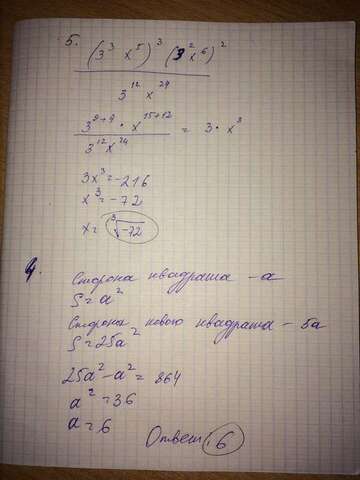 5. (3³ x⁵)³ (3² x⁶)²
3¹² x²⁴
3⁹⁺⁴ · x¹⁵⁺¹² = 3 · x³
3¹² x²⁴
3x³ = -216
x³ = -72
x = ³√-72
4.
Сторона квадрата - a
S = a²
Сторона нового квадрата - 5a
S = 25a²
25a² - a² = 864
a² = 36
a = 6
Ответ: 6